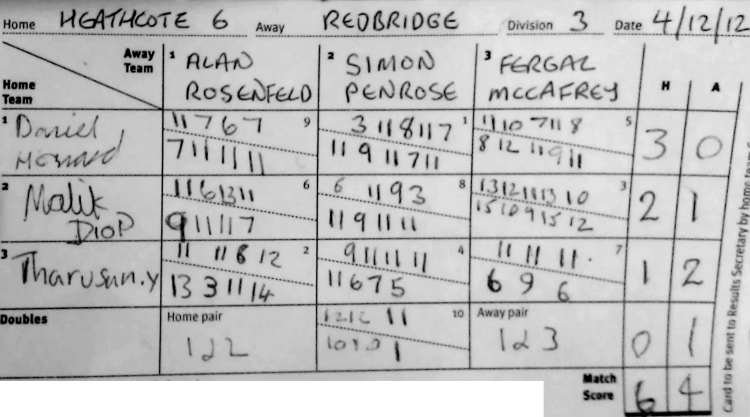 Home HEATHCOTE 6 Away REDBRIDGE Division 3 Date 4/12/12
Away Team
Home Team
1 ALAN ROSENFELD
2 SIMON PENROSE
3 FERGAL MCCAFREY
H A
1 Daniel
11 7 6 7 9
7 11 11 11
3 11 8 11 7 1
11 9 11 7 11
11 10 7 11 8 5
8 12 11 9 11
3 0
2 Malik DIOP
11 6 13 11 6
9 11 11 7
6 11 9 3 8
11 9 11 11
13 12 11 13 10 3
15 10 9 15 12
2 1
3 Tharusan.y
11 11 8 12 2
13 3 11 14
9 11 11 11 4
11 6 7 5
11 11 11. 7
6 9 6
1 2
Doubles
Home pair
1 2 2
12 12 11 10
10 10 1
Away pair
1 2 3
0 1
Match Score 6 4
Card to be sent to Results Secretary by home team